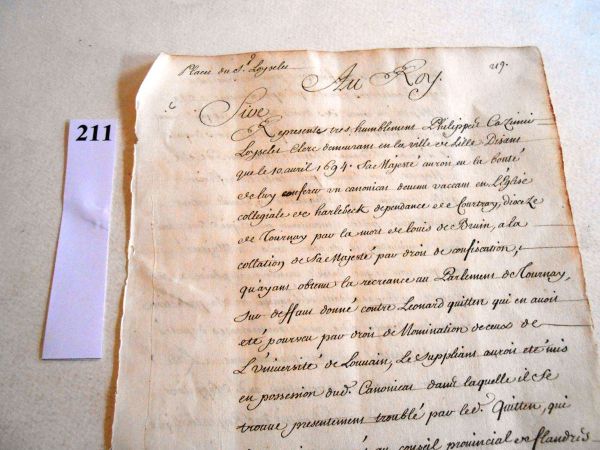 Placet du Sr. Loyselet
219.
Au Roy.
211
Sire
Represente tres humblement Philippes Cazimir
Loyselet Clerc demeurant en la ville de Lille Disant
que le 10 avril 1694. Sa Majesté auroit eu la bonté
de luy conferer un canonicat devenu vaccant en L'Eglise
collegiale de harlebeck dependance de Courtray, dioceze
de Tournay par la mort de louis de Bruin, a la
collation de Sa Majesté par droit de confiscation,
qu'ayant obtenu la recreance au Parlement de Tournay,
sur deffaut donné contre Leonard quitten qui en avoit
eté pourveu par droit de Nomination de ceux de
L'Université de Louvain, Le suppliant auroit eté mis
en possession dud. Canonicat dans laquelle il se
trouve presentement troublé par led. Quitten, qui
au conseil provincial de flandres